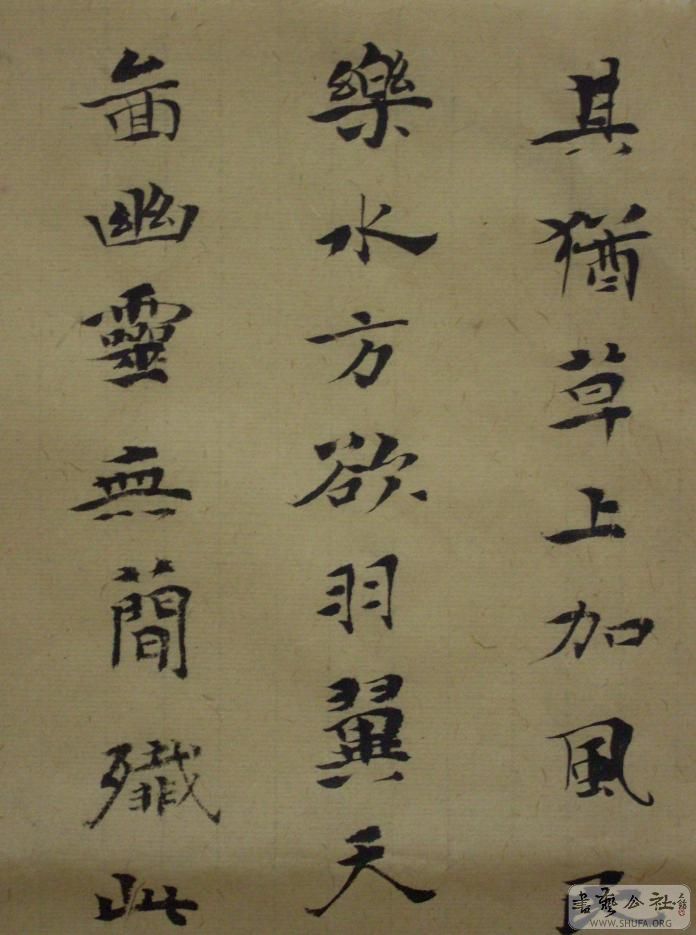 其猶草上加風民
樂水方欲羽翼天
啚幽靈無簡殲此
書藝公社
WWW.SHUFA.ORG